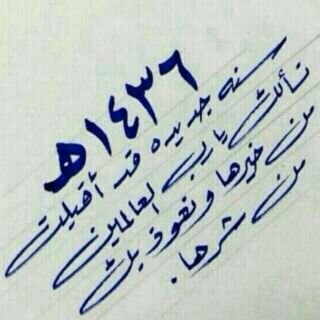 ١٤٣٦ه
سنه جديده قد أقبلت
نسألك يا رب العالمين
من خيرها ونعوذ بك
من شرها.